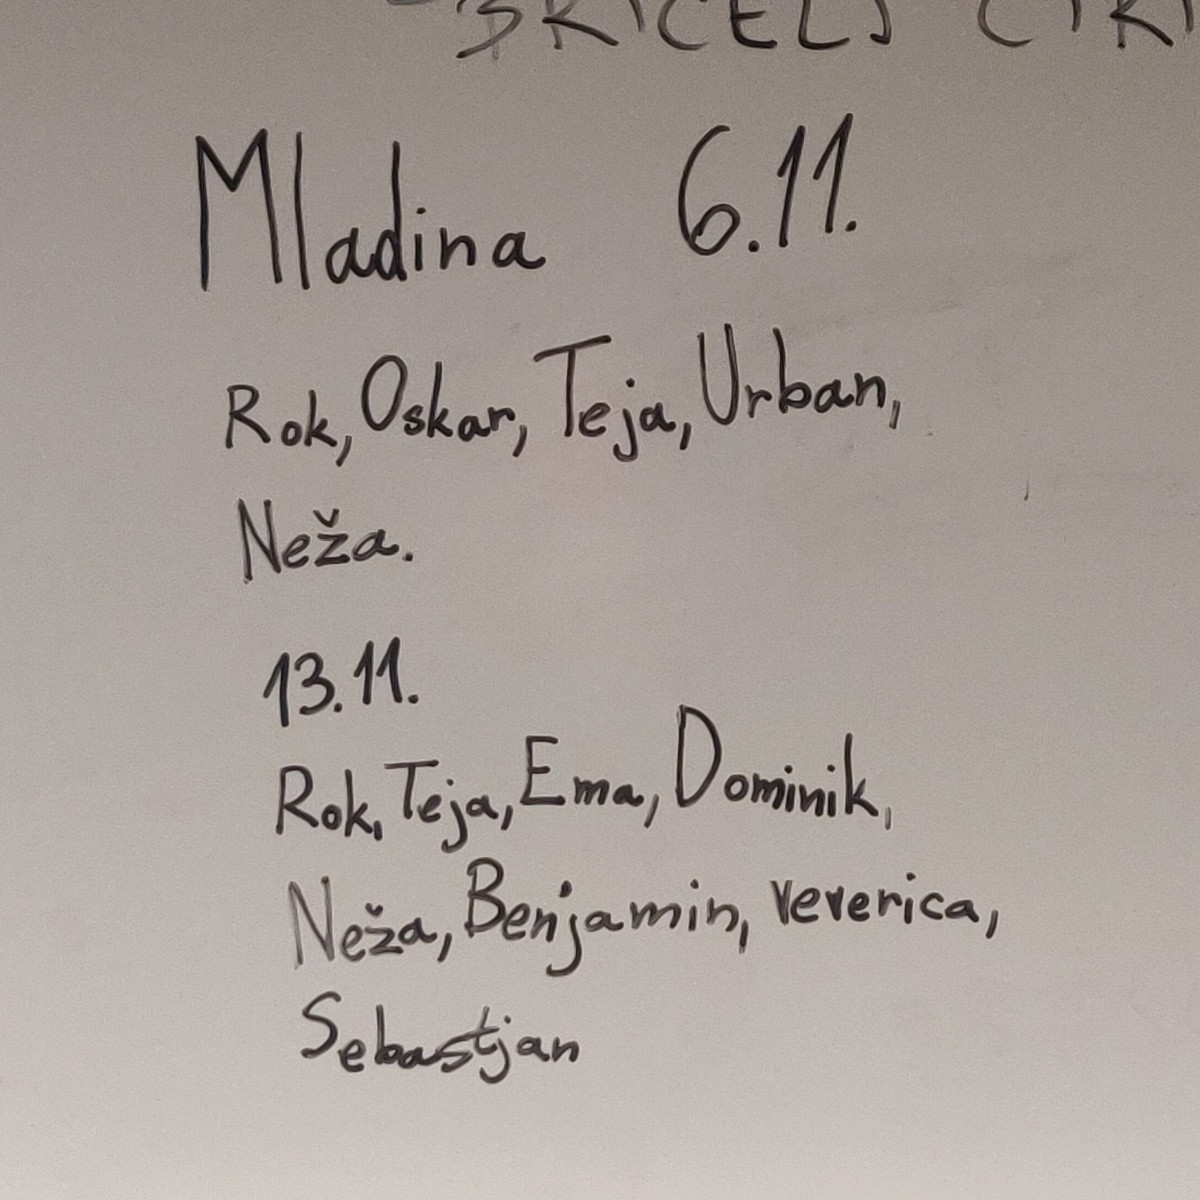 Mladina 6.11.
Rok, Oskar, Teja, Urban,
Neža.
13.11.
Rok, Teja, Ema, Dominik,
Neža, Benjamin, veverica,
Sebastjan